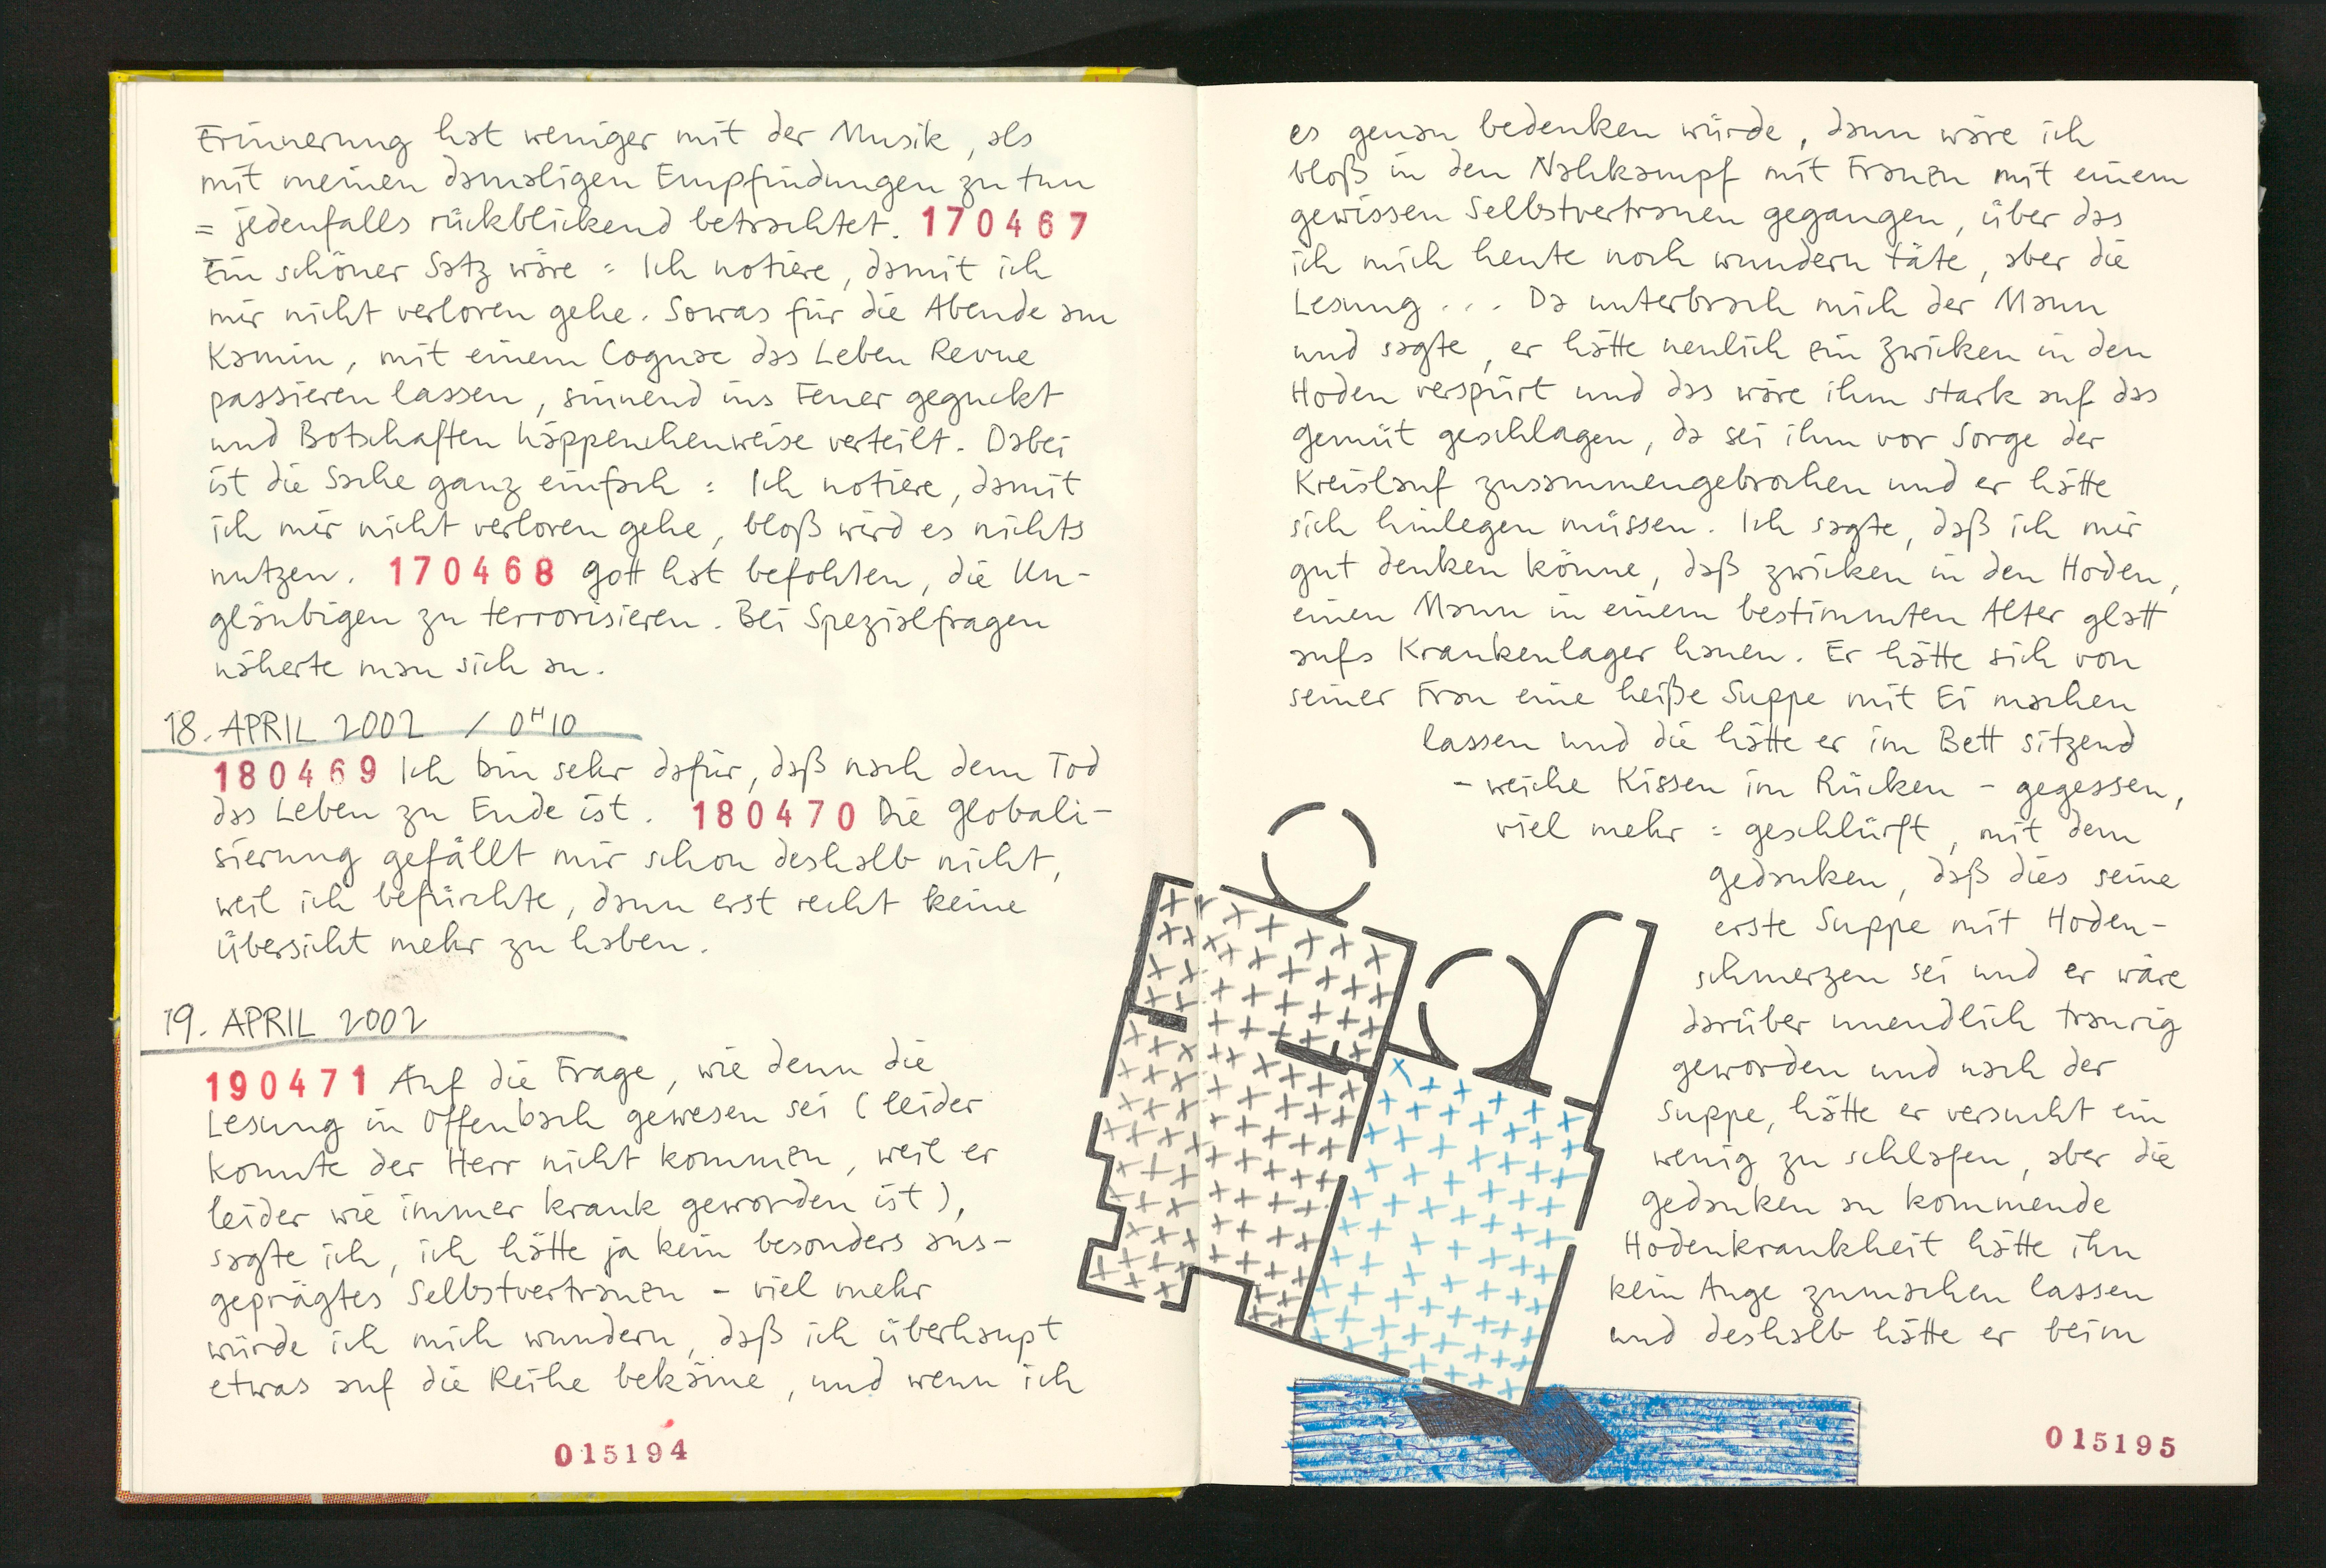 Erinnerung hat weniger mit der Musik, als
mit meinen damaligen Empfindungen zu tun
= jedenfalls rückblickend betrachtet. 170467
Ein schöner Satz wäre : Ich notiere, damit ich
mir nicht verloren gehe. Sowas für die Abende am
Kamin, mit einem Cognac das Leben Revue
passieren lassen, sinnend ins Feuer geguckt
und Botschaften häppenchenweise verteilt. Dabei
ist die Sache ganz einfach : Ich notiere, damit
ich mir nicht verloren gehe, bloß wird es nichts
nutzen. 170468 Gott hat befohlen, die Un-
gläubigen zu terrorisieren. Bei Spezialfragen
näherte man sich an.
18. APRIL 2002 / 0H10
180469 Ich bin sehr dafür, daß nach dem Tod
das Leben zu Ende ist. 180470 Die Globali-
sierung gefällt mir schon deshalb nicht,
weil ich befürchte, dann erst recht keine
Übersicht mehr zu haben.
19. APRIL 2002
190471 Auf die Frage, wie denn die
Lesung in Offenbach gewesen sei (leider
konnte der Herr nicht kommen, weil er
leider wie immer krank geworden ist),
sagte ich, ich hätte ja kein besonders aus-
geprägtes Selbstvertrauen - viel mehr
würde ich mich wundern, daß ich überhaupt
etwas auf die Reihe bekäme, und wenn ich
015194
es genau bedenken würde, dann wäre ich
bloß in den Nahkampf mit Frauen mit einem
gewissen Selbstvertrauen gegangen, über das
ich mich heute noch wundern täte, aber die
Lesung ... Da unterbrach mich der Mann
und sagte, er hätte neulich ein Zwicken in den
Hoden verspürt und das wäre ihm stark auf das
Gemüt geschlagen, da sei ihm vor Sorge der
Kreislauf zusammengebrochen und er hätte
sich hinlegen müssen. Ich sagte, daß ich mir
gut denken könne, daß Zwicken in den Hoden,
einen Mann in einem bestimmten Alter glatt
aufs Krankenlager hauen. Er hätte sich von
seiner Frau eine heiße Suppe mit Ei machen
lassen und die hätte er im Bett sitzend
- weiche Kissen im Rücken - gegessen,
viel mehr : geschlürft, mit dem
Gedanken, daß dies seine
erste Suppe mit Hoden-
schmerzen sei und er wäre
darüber unendlich traurig
geworden und nach der
Suppe, hätte er versucht ein
wenig zu schlafen, aber die
Gedanken an kommende
Hodenkrankheit hätte ihn
kein Auge zumachen lassen
und deshalb hätte er beim
015195